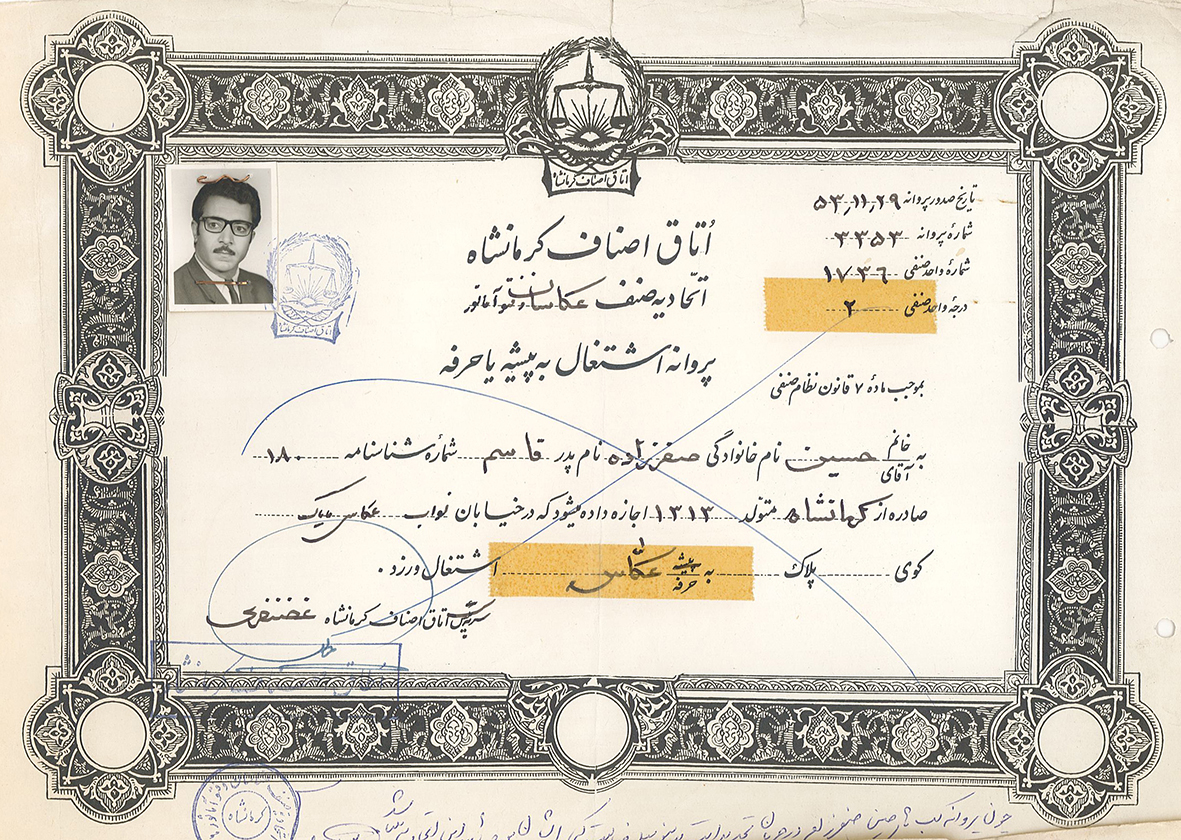 اتاق اصناف کرمانشاه
تاریخ صدور پروانه ۵۳٫۱۱٫۲۹
شمارهٔ پروانه ۳۳۵۳
شمارهٔ واحد صنفی ۱۷۳۶
درجهٔ واحد صنفی ۲
اُتاق اصناف کرمانشاه
اتّحادیه صنف عکاسان
اتاق اصناف کرمانشاه
پروانه اشتغال به پیشه یا حرفه
بموجب مادهٔ ۷ قانون نظام صنفی
به خانم آقای حسین نام خانوادگی صفرزاده نام پدر قاسم شمارهٔ شناسنامه ۱۸۰
صادره از کرمانشاه متولّد ۱۳۱۳ اجازه داده میشود که در خیابان نواب عکاسی
کوی پلاک به پیشه حرفه عکاسی اشتغال ورزد .
سرپرست اتاق اصناف کرمانشاه غضنفری
کرمانشاه
چون پروانه کسب